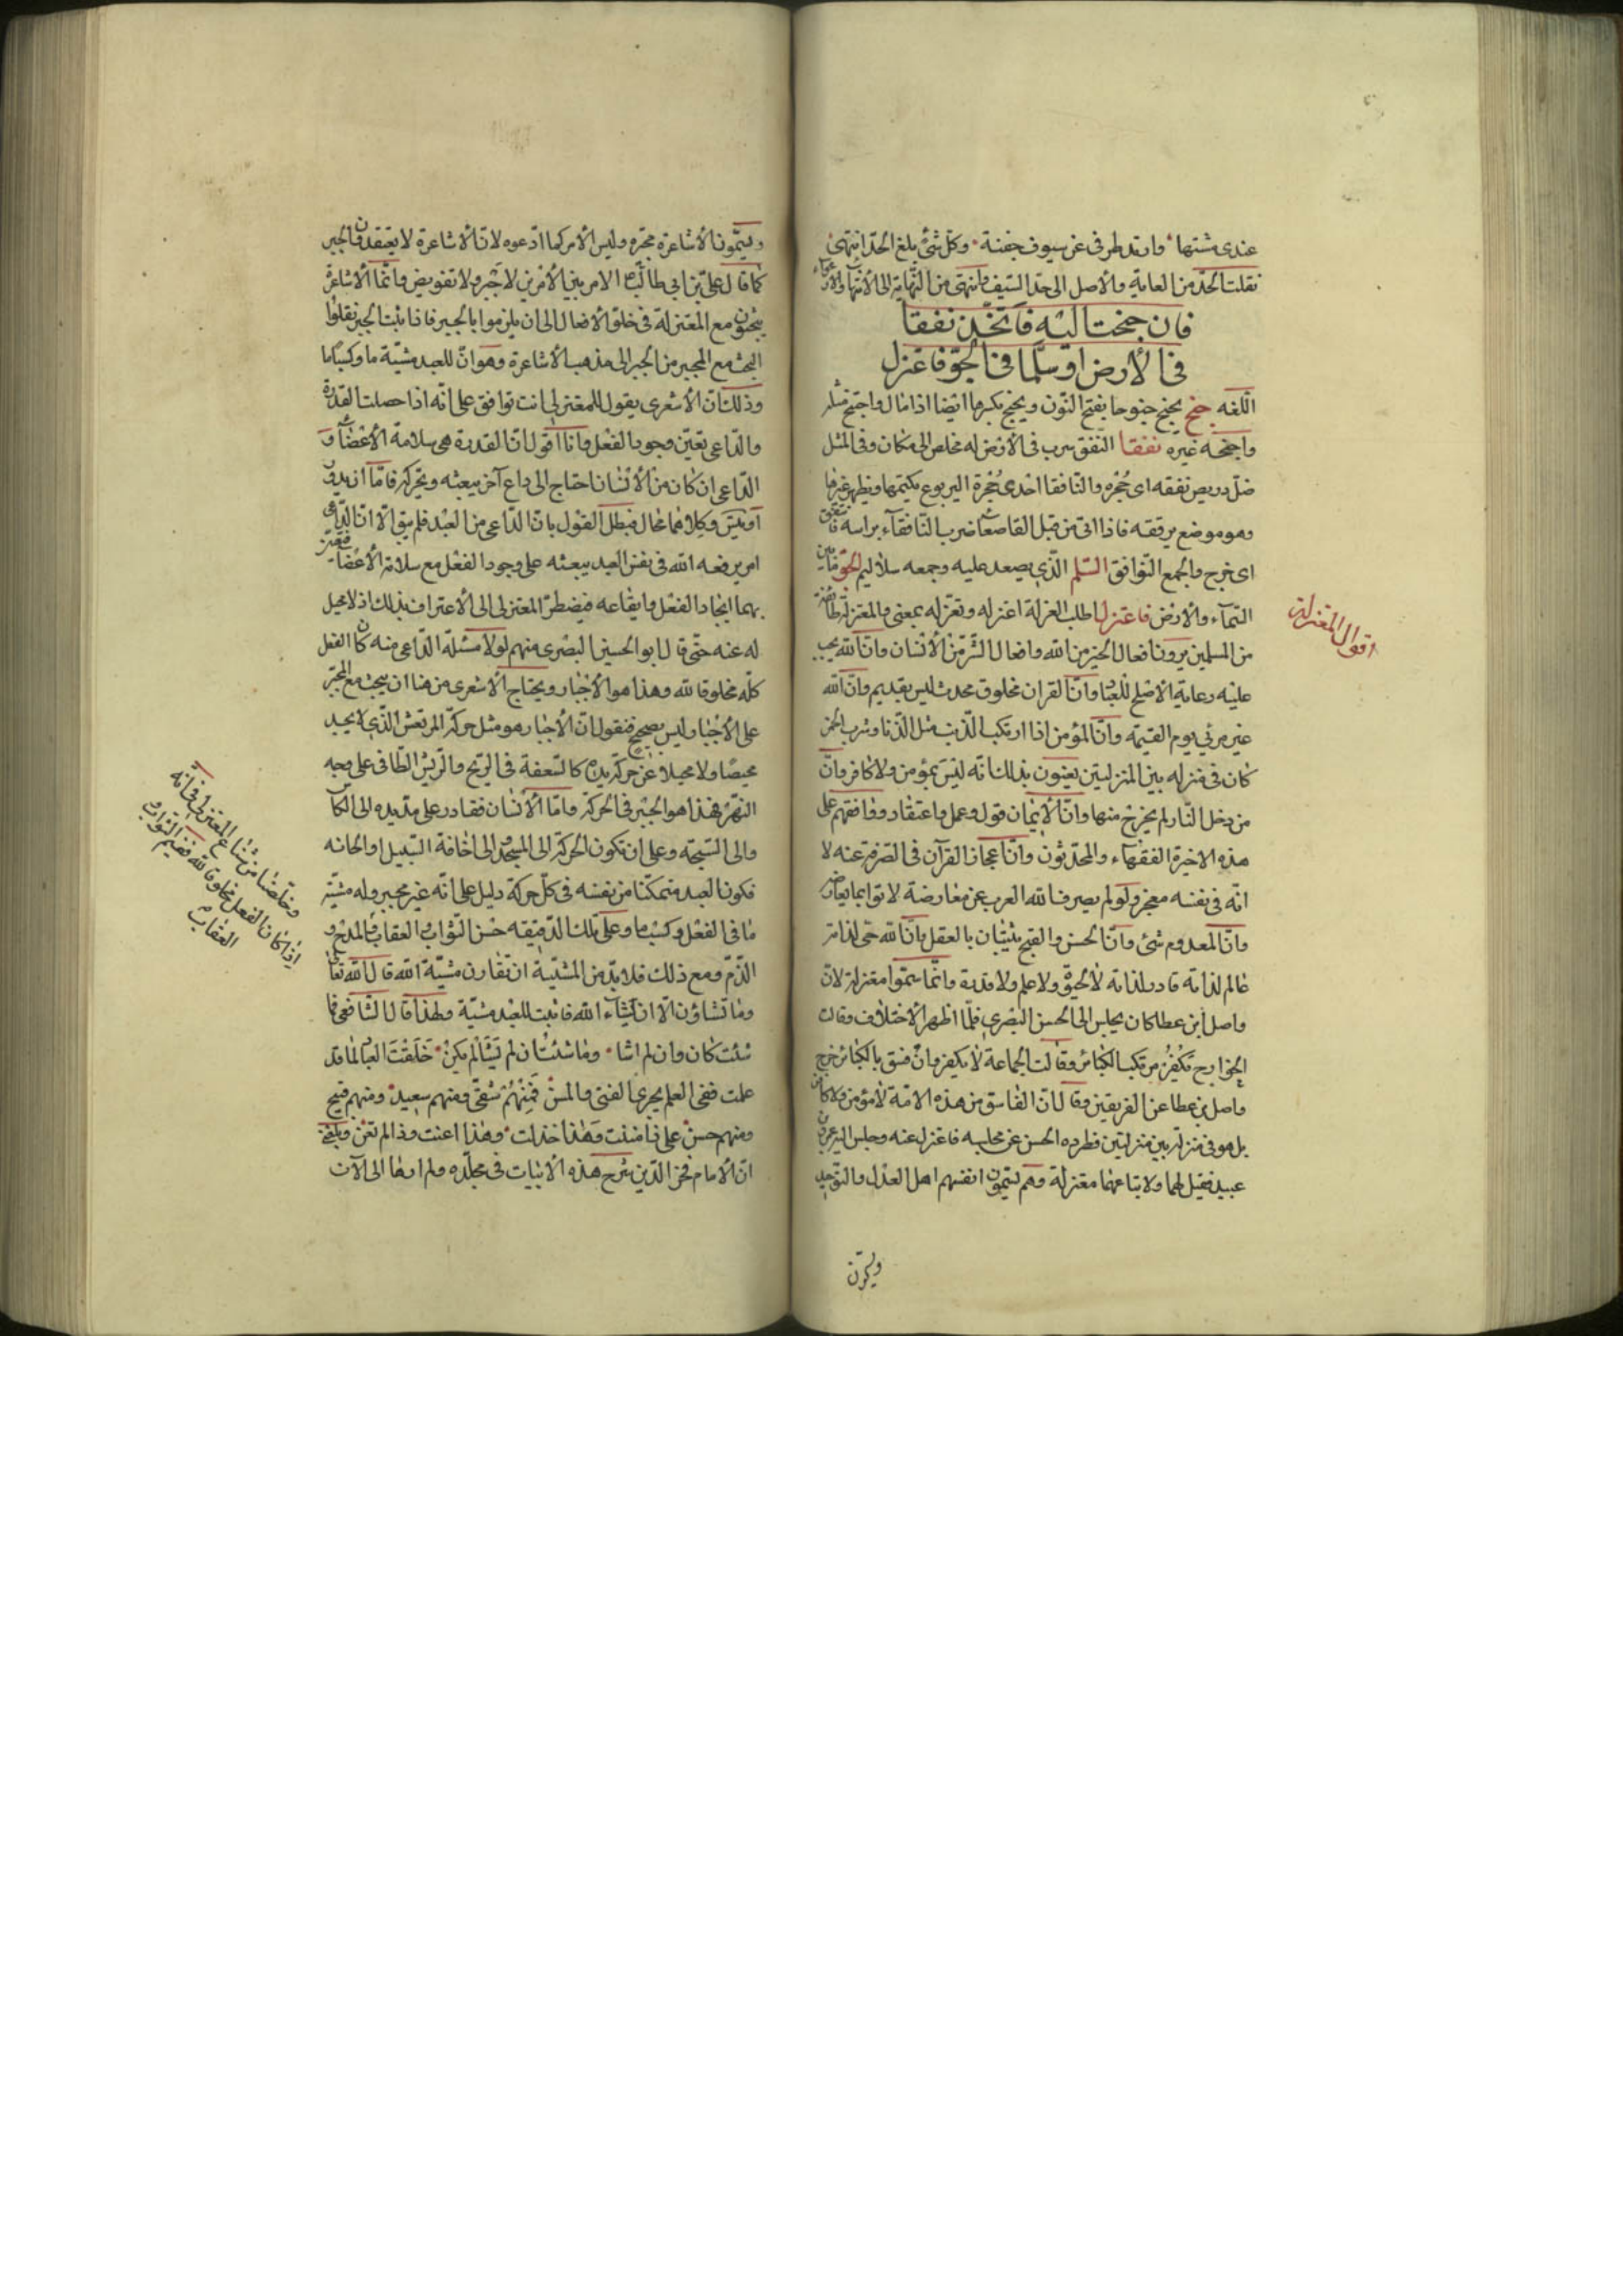 عندى مشتها وارتد طرفى عن سيوف جفنة وكل شئ بلغ الحد انتهى
نقلت الحد من الغاية والأصل الى حد السيف وانتهى من النهاية الى الانتهاء والارعواء
فان جنحت اليه فاتخذ نفقا
فى الأرض او سلما فى الجو فاعتزل
اللغه جنح يجنح جنوحا بفتح النون ويجنح بكسرها ايضا اذا مال واجتنح مثله
واجنحه غيره نفقا النفق سرب فى الأرض له مخلص الى مكان وفى المثل
ضل دريص نفقه اى جُحْره والنافقا احدى جُحْرة اليربوع يكتمها ويظهر غيرها
وهو موضع يرققه فاذا اتى من قبل القاصعا ضرب النافقاء براسه فانتفق
اى خرج والجمع النوافق السّلم الّذى يصعد عليه وجمعه سلاليم الجوّ ما بين
السّمآء والارض فاعتزل اطلب العزلة اعتزله وتعزّله بمعنى والمعتزلة طائفة
من المسلمين يرون افعال الخير من الله وافعال الشّر من الأنسان وانّ الله يجب
عليه رعاية الأصلح للعباد وانّ القران مخلوق محدث ليس بقديم وانّ الله
غير مرئى يوم القيمه وانّ المؤمن اذا ارتكب الذّنب مثل الزّنا وشرب الخمر
كان فى منزله بين المنزلتين يعنون بذلك انّه ليس بمؤمن ولا كافر وانّ
من دخل النّار لم يخرج منها وانّ الأيمان قول وعمل واعتقاد ووافقهم على
هذه الاخيرة الفقهاء والمحدّثون وانّ اعجاز القرآن فى الصّرفة عنه لا
انّه فى نفسه معجز ولو لم يصرف الله العرب عن معارضة لاتوا بما يعارضه
وانّ المعدوم شئ وانّ الحسن والقبح يثبتان بالعقل وانّ الله حى لذاته
عالم لذاته قادر لذاته لا لحيوة ولا علم ولا قدرة وانّما سمّوا معتزلة لانّ
واصل ابن عطا كان يجلس الى الحسن البصرى فلمّا اظهر الاختلاف وقالت
الخوارج تكفُّر مرتكب الكبائر وقالت الجماعة لا يكفر وان فسق بالكبائر خرج
واصل بن عطا عن الفريقين وقال انّ الفاسق من هذه الامّة لا مؤمن ولا كافر
بل هو فى منزلة بين منزلتين فطرده الحسن عن مجلسه فاعتزل عنه وجلس اليه عمرو بن
عبيد فقيل لهما ولاتباعهما معتزلة وهم يسمّون انفسهم اهل العدل والتّوحيد
اقوال المعتزلة
ويسمّون الأشاعرة مجبّره وليس الأمر كما ادّعوه لانّ الأشاعرة لا يعتقدون الجبر
كما قال علىّ بن ابى طالب الامر بين الأمرين لا جَبْر ولا تفويض وانّما الأشاعرة
يبحثون مع المعتزلة فى خلق الافعال الى ان يلزموا بالجبر فاذا ثبت الجبر نقلوا
البحث مع المجبر من الجبر الى مذهب الأشاعرة وهو انّ للعبد مشيّة ما وكسبا ما
وذلك انّ الأشعرى يقول للمعتزلى انت توافق على انّه اذا حصلت القدرة
والدّاعى تعيّن وجود الفعل وانا اقول انّ القدرة هى سلامة الأعضاء و
الدّاعى ان كان من الأنسان احتاج الى داع آخر يبعثه ويحرّكه فامّا ان يدور
او يتس وكلاهما محال فبطل القول بانّ الدّاعى من العبد فلم يبق الّا انّ الدّاعى
امر يرفعه الله فى نفس العبد يبعثه على وجود الفعل مع سلامة الأعضاء
بهما ايجاد الفعل وايقاعه فيضطرّ المعتزلى الى الأعتراف بذلك اذ لا محيل
له عنه حتّى قال ابو الحسين البصرى منهم لولا مسئلة الدّاعى منه كان الفعل
كلّه مخلوقا لله وهذا هو الأجبار ويحتاج الأشعرى من هنا ان يبحث مع المجبّر
على الأجبار وليس بصحيح فنقول انّ الأجبار هو مثل حركة المرتعش الّذى لا يجد
محيصًا ولا محيلا عن حركة يده كالسّعفة فى الرّيح والرّيش الطّافى على وجه
النّهر فهذا هو الجبر فى الحركة وامّا الأنسان فقادر على مدّ يده الى الكأ
والى السّبحة وعلى ان تكون الحركة الى المسجد الى اخافة السّبيل او الحانه
فكون العبد متمكّنا من نفسه فى كلّ حركة دليل على انّه غير مجبر وله مشيّة
ما فى الفعل وكسبا ما وعلى تلك الدّقيقه حسن الثّواب والعقاب والمدح و
الذّمّ ومع ذلك فلا بدّ من المشيّة ان تقارن مشيّة الله قال الله تعالى
وما تشاؤن الّا ان يشاء الله فاثبت للعبد مشيّة ولهذا قال الشّافعى فما
شئت كان وان لم اشا وما شئت ان لم تشا لم يكن خلقت العباد لما قد
علمت ففى العلم يجرى الفتى والمسن فمنهم شقى ومنهم سعيد ومنهم قبيح
ومنهم حسن على ذا مننت وهذا خذلت وهذا اعنت وذا لم تعن وبلغنى
انّ الأمام فخر الدّين شرح هذه الأبيات فى مجلّده ولم ارها الى الآن
وحاصل
اذا كان الفعل مخلوقا لله ففيم الثواب
العقاب